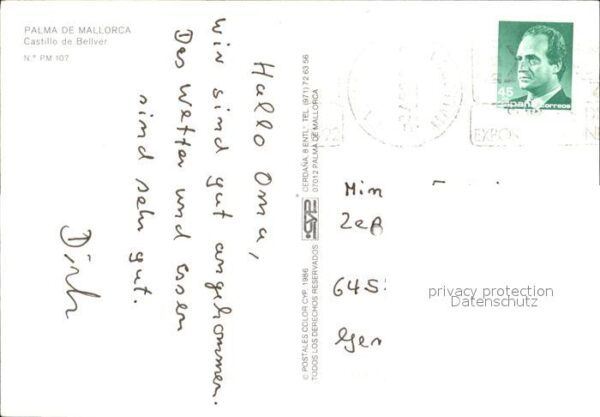 PALMA DE MALLORCA
Castillo de Bellver
N.º PM 107
Hallo Oma,
wir sind gut angekommen.
Das Wetter und essen
sind sehr gut.
Dirk
© POSTALES COLOR CYP, 1986
TODOS LOS DERECHOS RESERVADOS
CYP
CERDAÑA, 8 ENTL. TEL. (971) 72 63 56
07012 PALMA DE MALLORCA
45
España correos
EXPO
Mim
645
Ger
privacy protection
Datenschutz